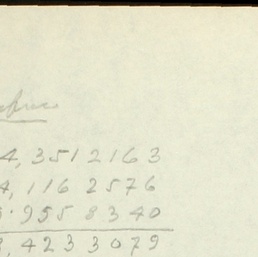 4,3512163
4,1162576
9.9558340
8,4233079